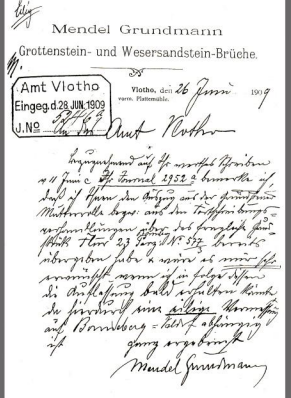 Eilig
Mendel Grundmann
Grottenstein- und Wesersandstein-Brüche.
Vlotho, den 26 Juni 1909
vorm. Plattemühle.
Amt Vlotho
Eingeg. d. 28. JUNI. 1909
J. No
An das Amt Vlotho
Bezugnehmend auf Ihr werthes Schreiben
v 11 Juni c. Ih. Journal 2952 a bemerke ich
daß ich Ihnen den Auszug aus der Grundsteuer
Mutterrolle bezw. aus den Fortschreibungs
verhandlungen des fragliche Grund
stück Flur 23 Parz. No 577 bereits
übergeben habe u. wäre es mir sehr
erwünscht wenn ich in folge dessen
die Auflassung bald erhalten könnte
da hierdurch eine eilige Vermessung
auf Bonneberg abhängig
ist
ganz ergebenst
Mendel Grundmann